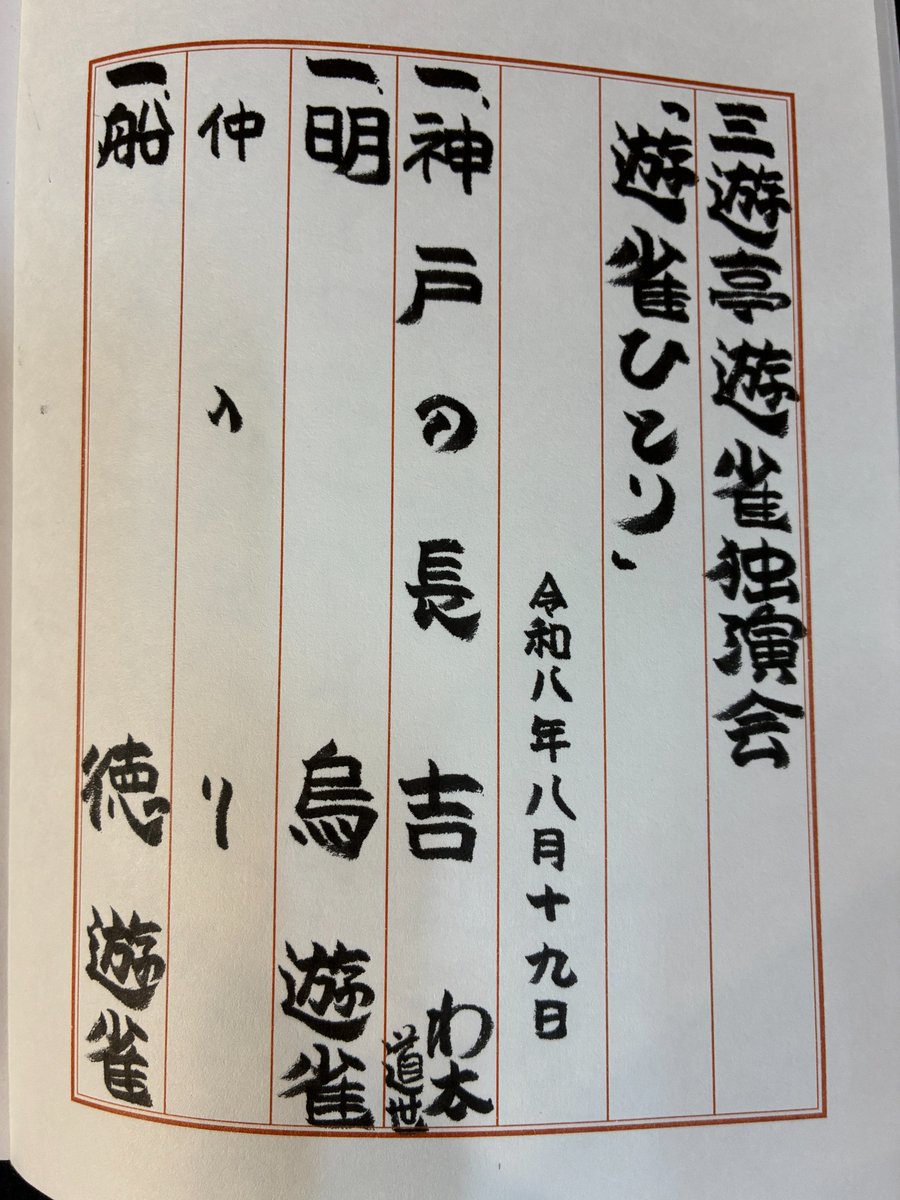 三遊亭遊雀独演会
「遊雀ひとり」
令和八年八月十九日
一、神戸の長吉 わ太
道世
一、明烏 遊雀
仲入り
一、船徳 遊雀